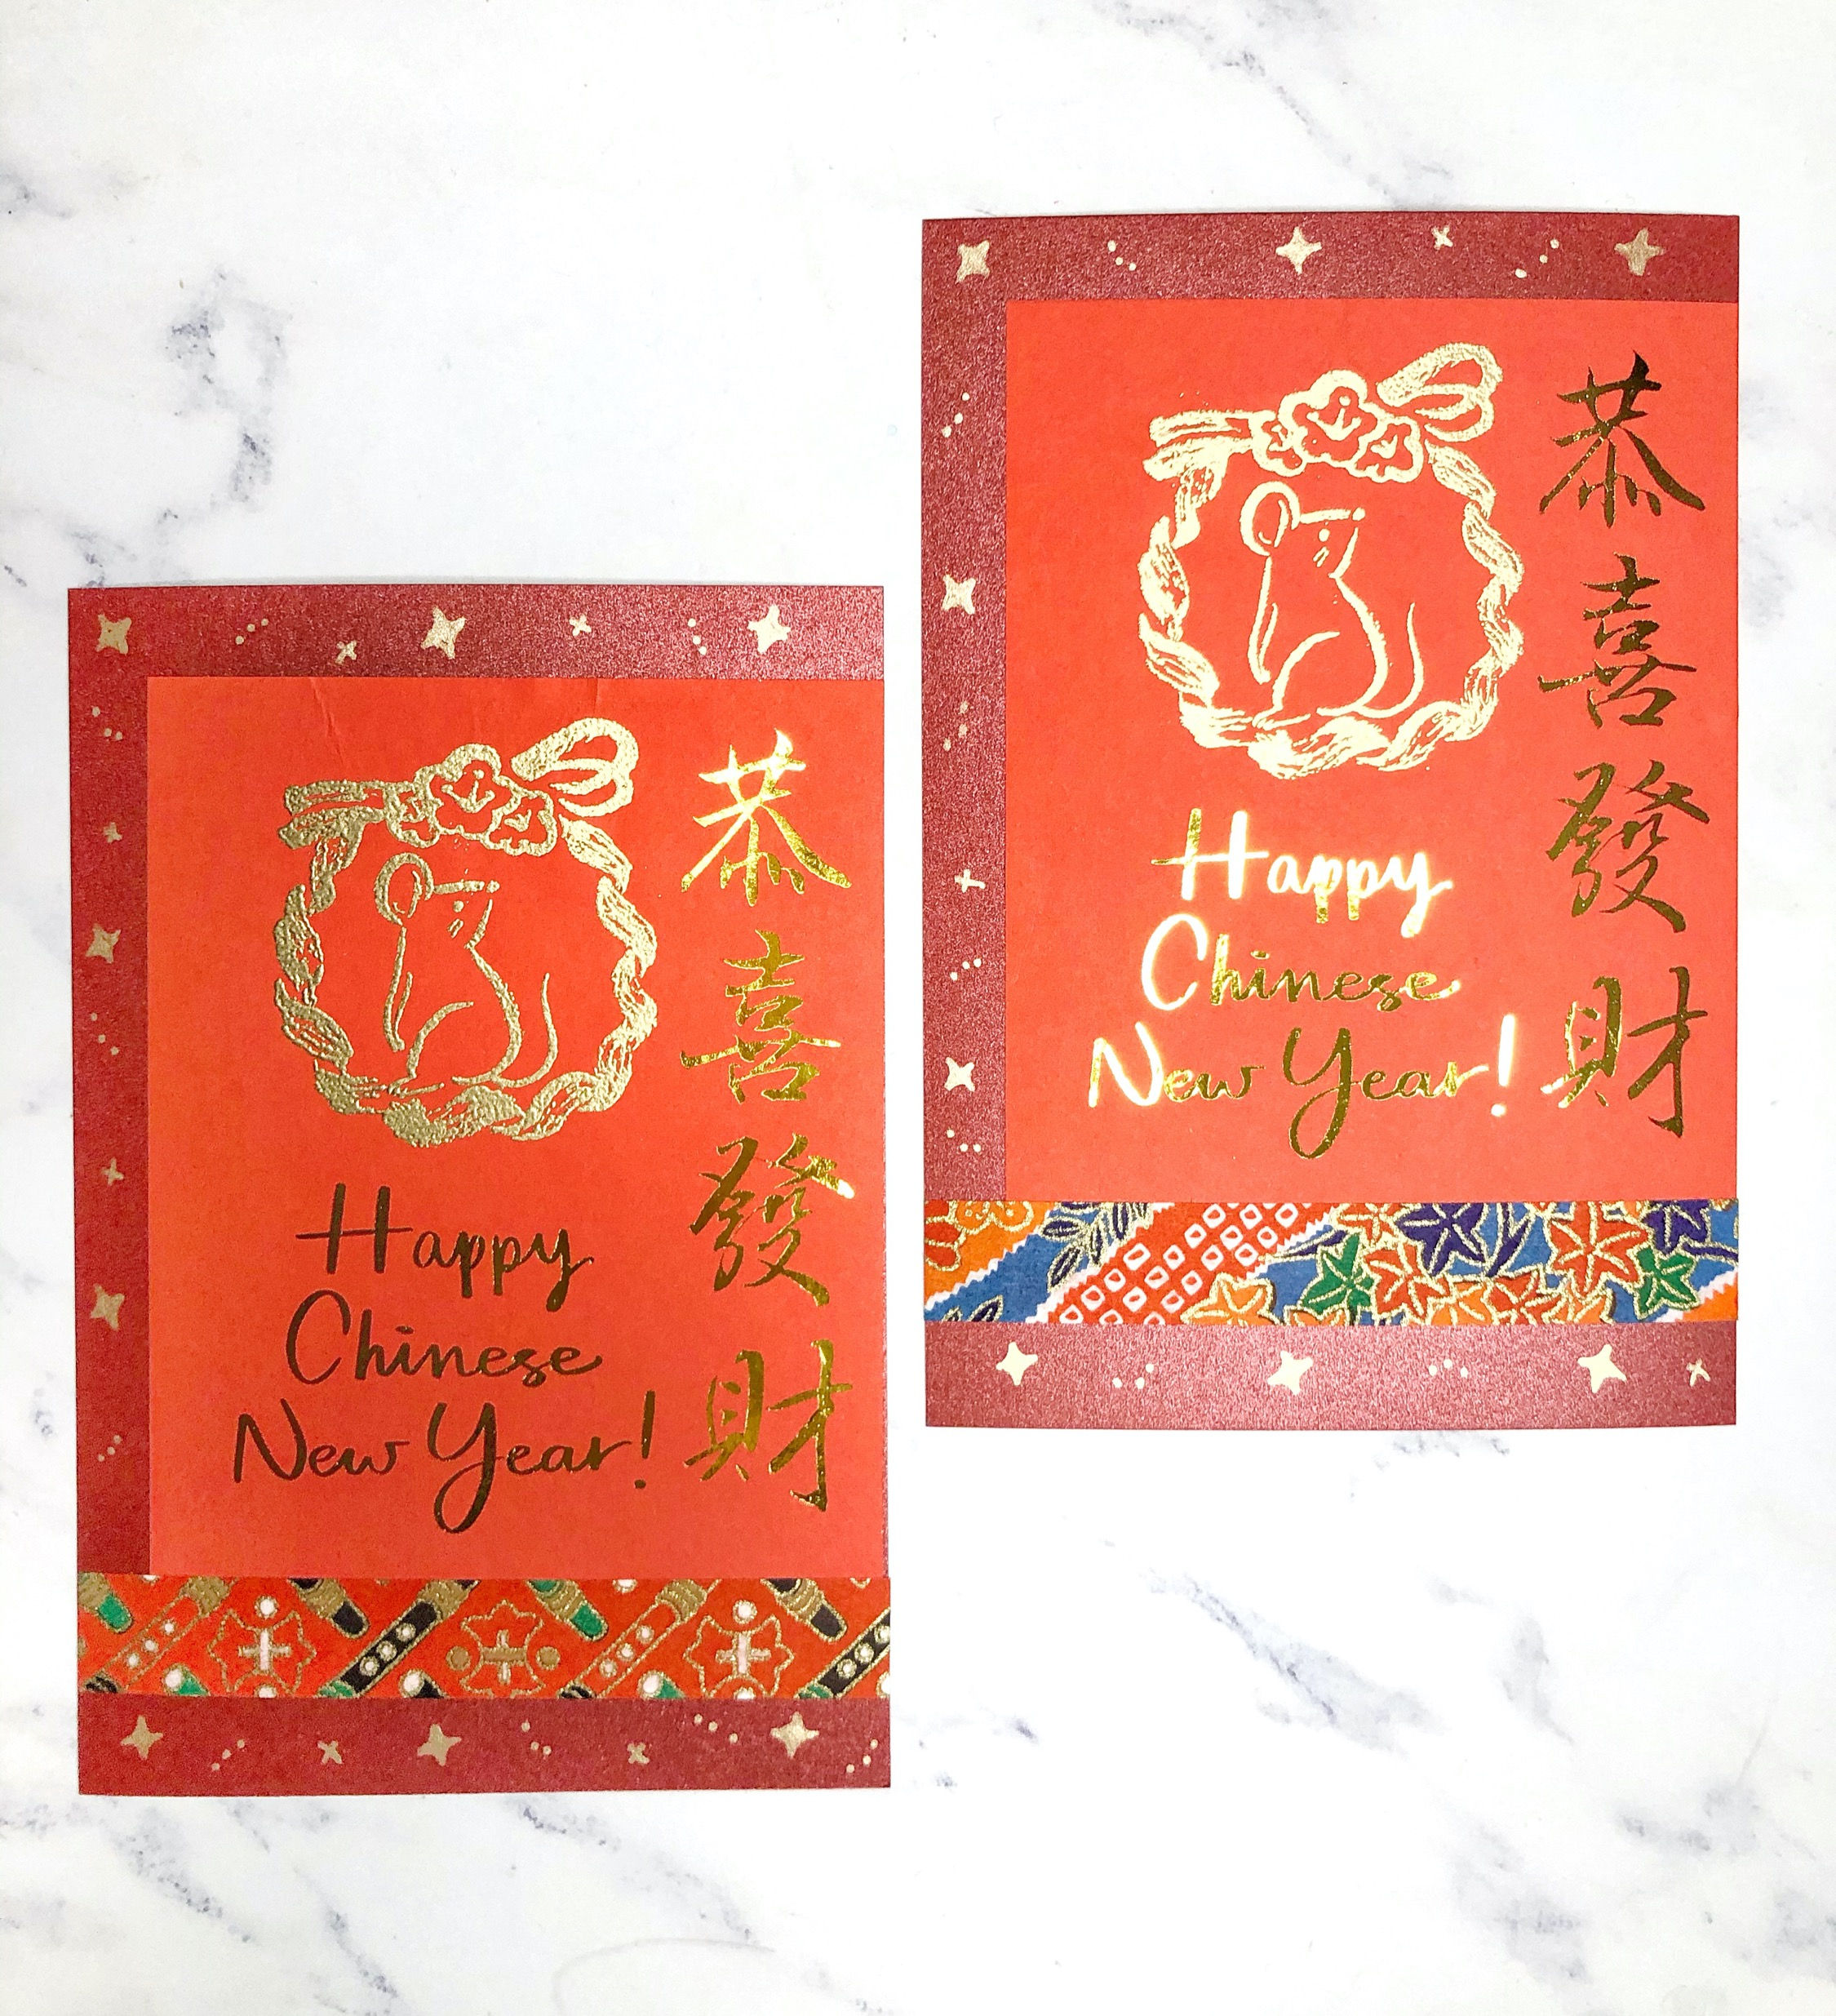 Happy
Chinese
New Year!
恭喜發財
Happy
Chinese
New Year!
恭喜發財